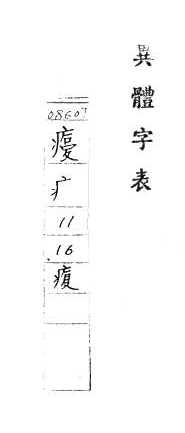 異體字表
08607
疒
11
16